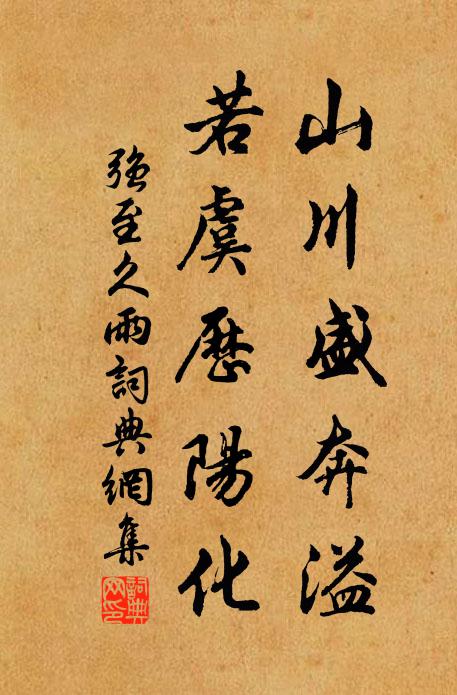 山川盛奔溢
若虞歷陽化
强至久雨詞典網集
詞典网印